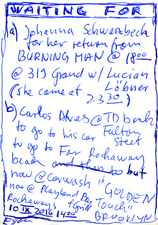 WAITING FOR
a) Johanna Schwarzbeck
for her return from
BURNING MAN @ 18:00
@ 319 Grand w/ Lucian
(she came at Löbner
23 30)
b) Carlos Alves @ TD bank
to go to his car Fulton
Street
to go to Far Rockaway
beach and then to but
now @ carwash "GOLDEN
now @ Bayland Bar TOUCH"
Rockaways & Grill BROOKLYN
10 IX 2016 14:00